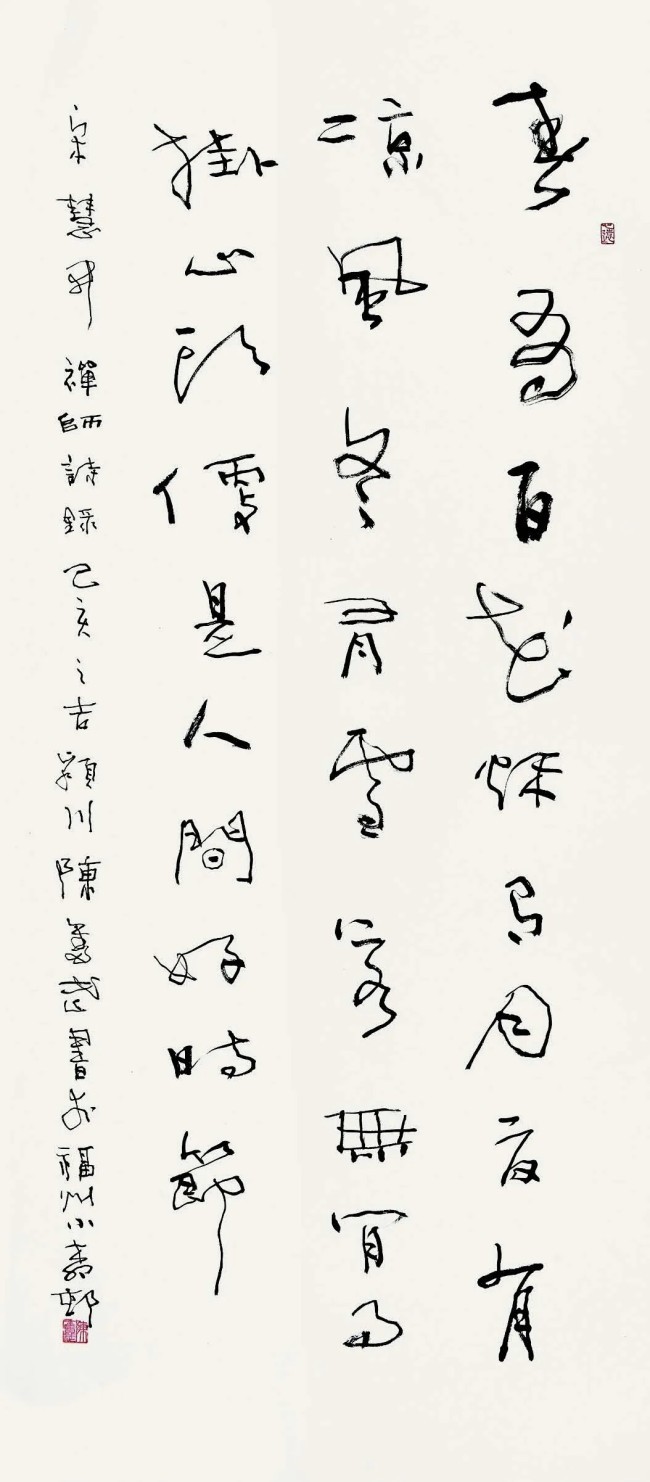 春有百花秋有月夏有
涼風冬有雪若無閒事
掛心頭便是人間好時節
宋慧開禪師詩錄己亥之吉潁川陳書於福州小邨